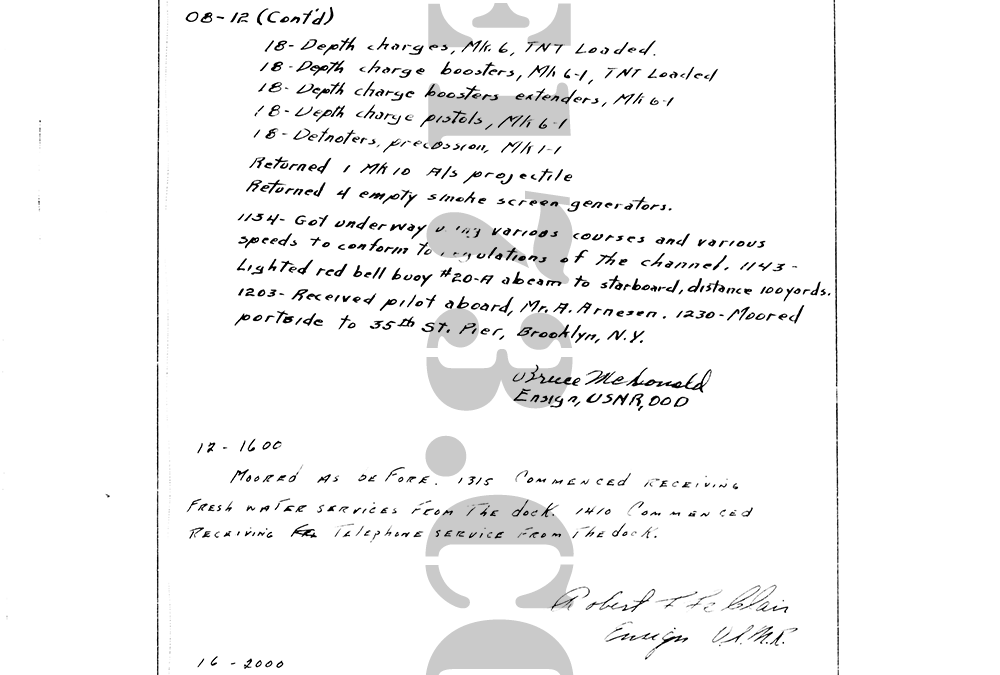 08-12 (Cont'd)
18- Depth charges, Mk. 6, TNT Loaded.
18- Depth charge boosters, Mk 6-1, TNT Loaded
18- Depth charge boosters extenders, Mk 6-1
18- Depth charge pistols, Mk 6-1
18- Detnoters, precossion, Mk 1-1
Returned 1 Mk 10 A/s projectile
Returned 4 empty smoke screen generators.
1134- Got underway using various courses and various
speeds to conform to regulations of the channel. 1143-
Lighted red bell buoy #20-A abeam to starboard, distance 100 yards.
1203- Received pilot aboard, Mr. A. Arnesen. 1230- Moored
portside to 35th St. Pier, Brooklyn, N.Y.
Bruce McDonald
Ensign, USNR, OOD
12 - 1600
Moored as before. 1315 Commenced receiving
fresh water services from the dock. 1410 Commenced
receiving telephone service from the dock.
Robert
Ensign U.S.N.R.
16 - 2000